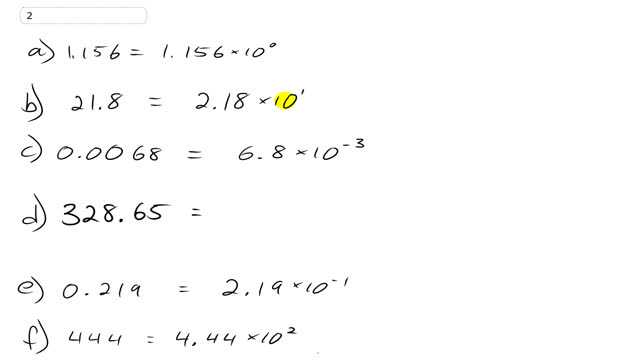 2
a) 1.156 = 1.156 × 10⁰
b) 21.8 = 2.18 × 10¹
c) 0.0068 = 6.8 × 10⁻³
d) 328.65 =
e) 0.219 = 2.19 × 10⁻¹
f) 444 = 4.44 × 10²